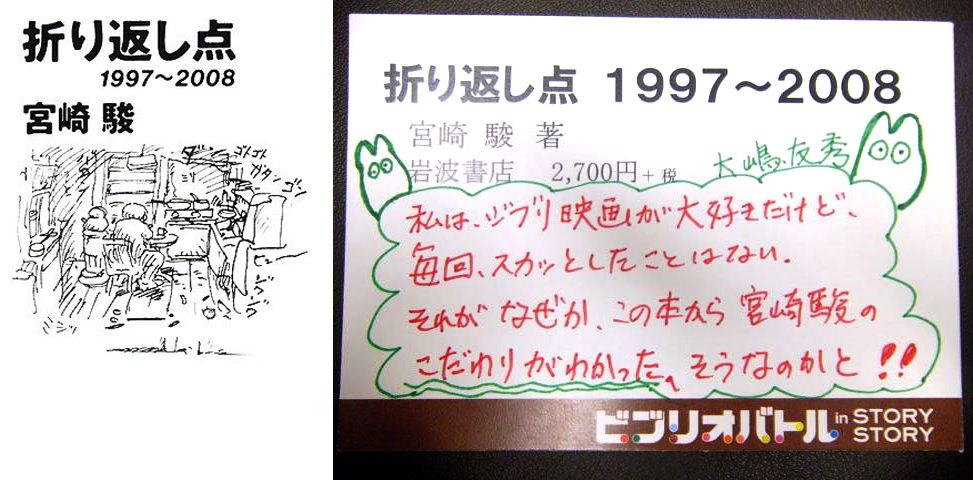 折り返し点
1997〜2008
宮崎 駿
ゴトゴト
ガタン
ゴン
ミシッ
折り返し点 1997〜2008
宮崎 駿 著
岩波書店 2,700円+税
大嶋友秀
私は、ジブリ映画が大好きだけど、
毎回、スカッとしたことはない.
それがなぜか、この本から宮崎駿の
こだわりがわかった。そうなのかと!!
ビブリオバトル in STORY STORY